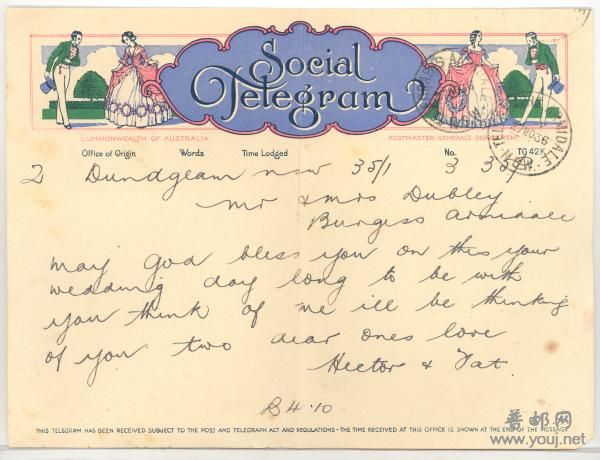 Social
Telegram
COMMONWEALTH OF AUSTRALIA
POSTMASTER-GENERAL'S DEPARTMENT
Office of Origin Words Time Lodged No. TG 42K
2 Dundgleam nsw 35/1 3 35p
mr & mrs Dubley
Burgess Armidale
may god bless you on this your
wedding day long to be with
you think of me ill be thinking
of you two dear ones love
Hector & Pat.
B4.10
THIS TELEGRAM HAS BEEN RECEIVED SUBJECT TO THE POST AND TELEGRAPH ACT AND REGULATIONS - THE TIME RECEIVED AT THIS OFFICE IS SHOWN AT THE END OF THE MESSAGE
普邮网
www.youj.net